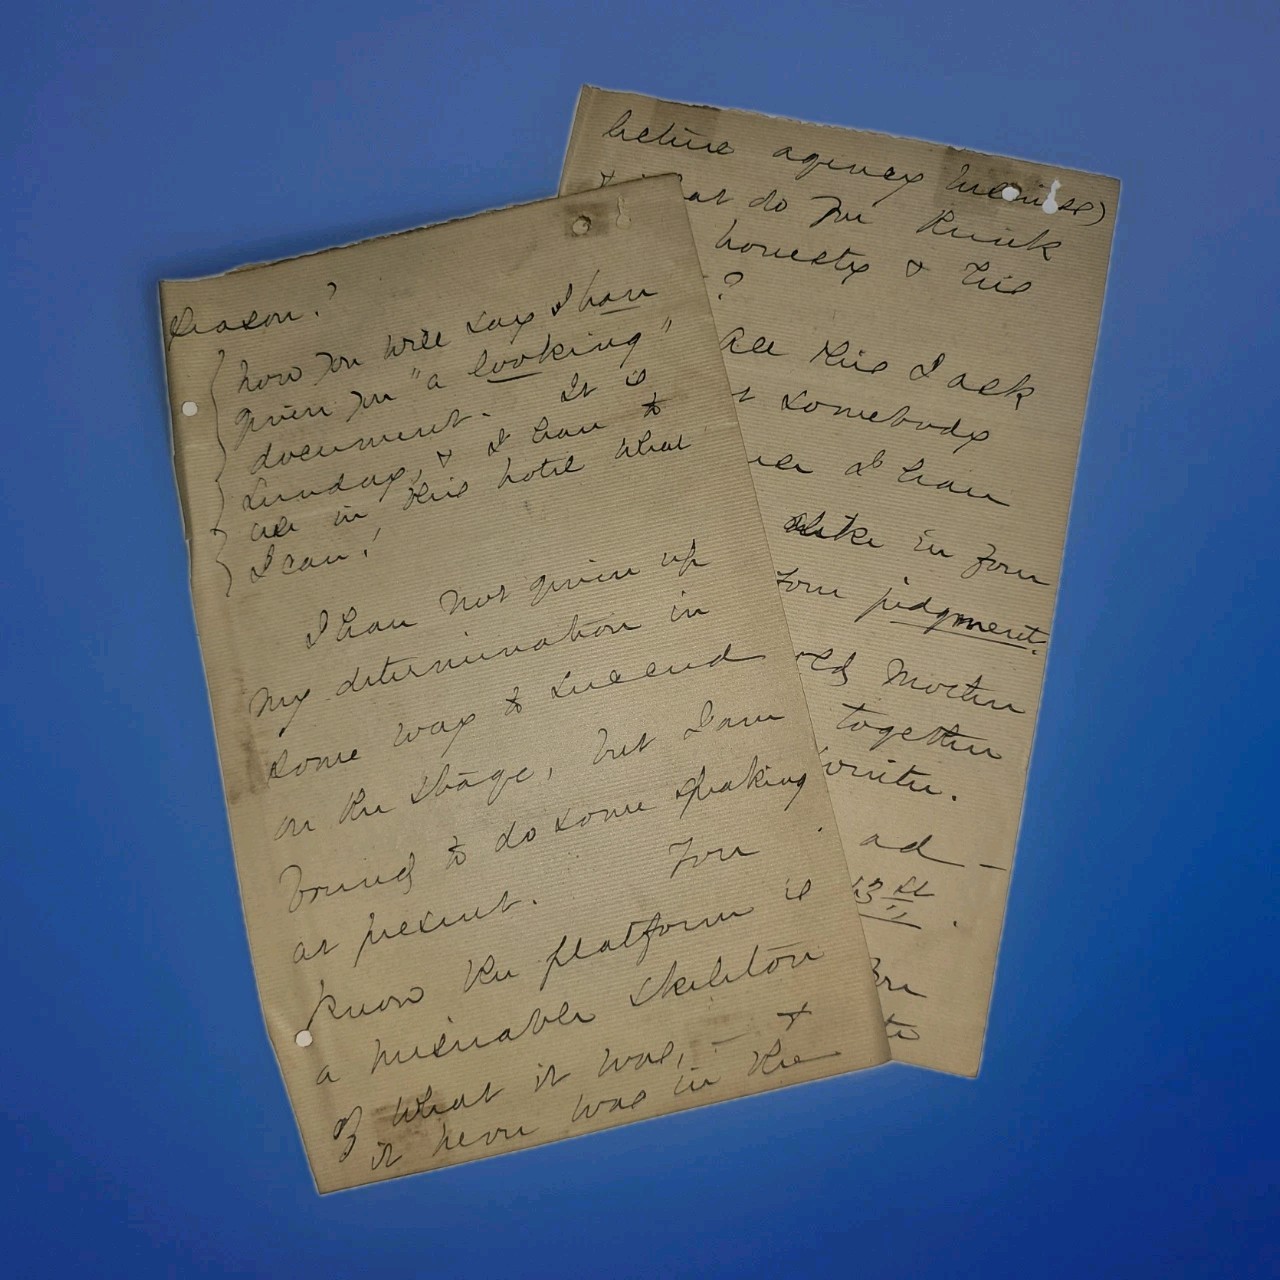 season?
how you will say I have
given you "a looking"
document. It is
Sunday, & I have to
use in this hotel what
I can!
I have not given up
my determination in
some way to succeed
on the stage, but I am
bound to do some speaking
at present. You
know the platform is
a miserable skeleton
of what it was, - &
it never was in the
lecture agency business)
what do you think
honesty & his
?
All this I ask
somebody
I have
alike in your
your judgment.
old Mother
together
write.
ad-
43 St.